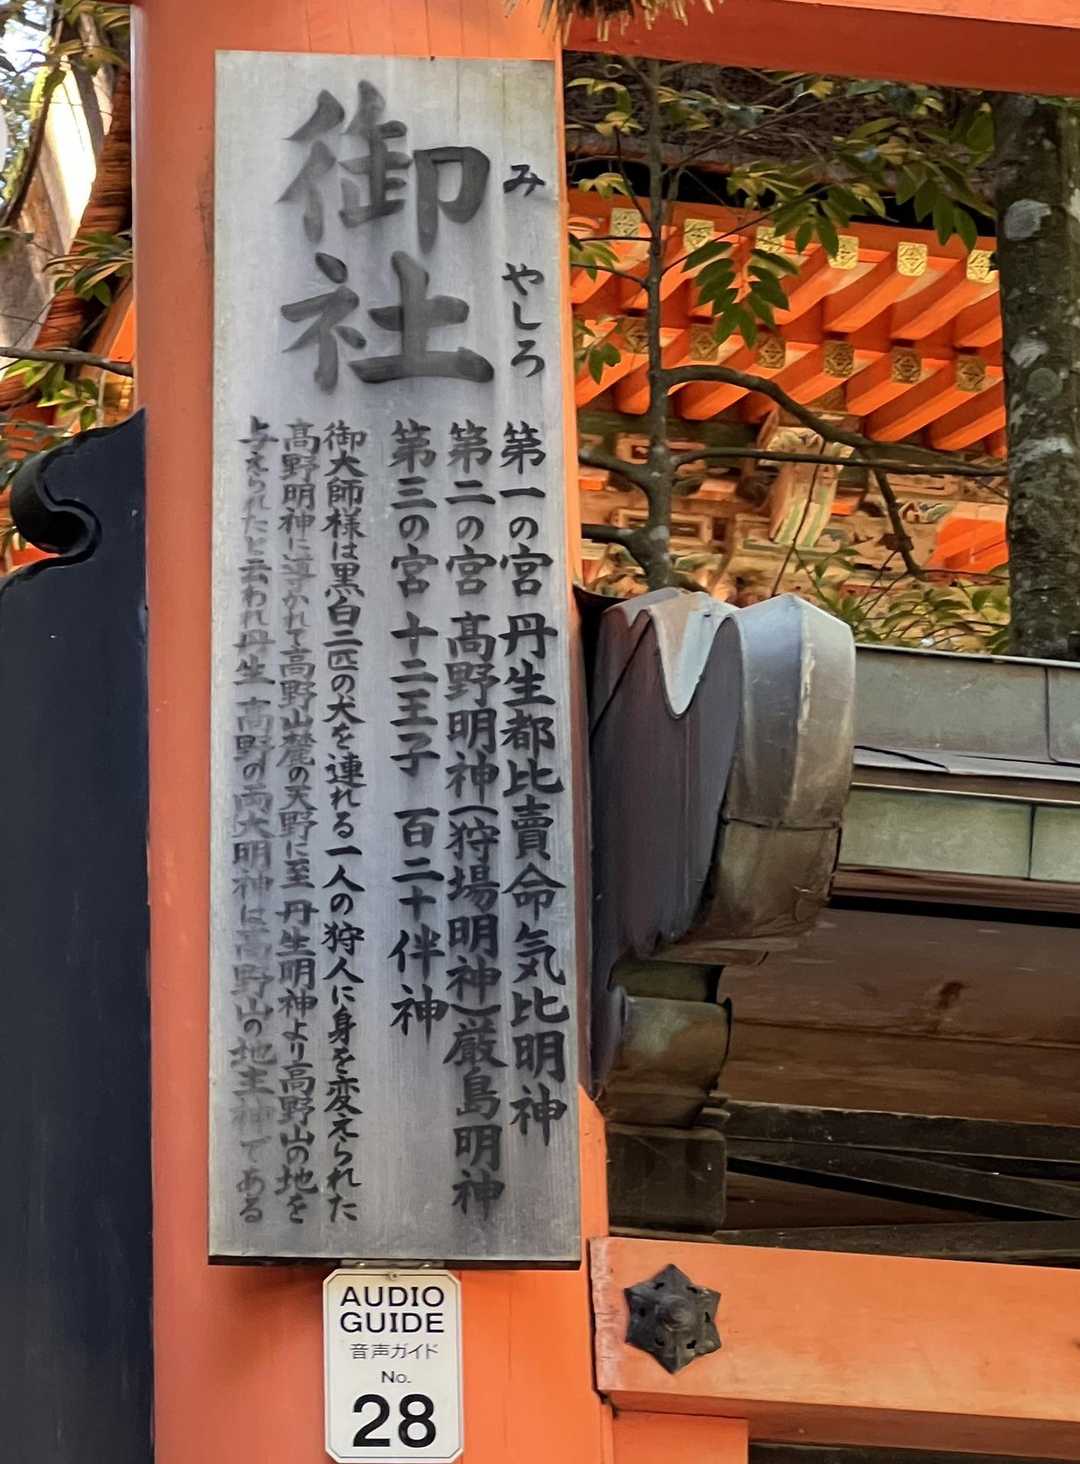 御社
みやしろ
第一の宮 丹生都比賣命 気比明神
第二の宮 髙野明神(狩場明神)厳島明神
第三の宮 十二王子 百二十伴神
御大師様は黒白二匹の犬を連れる一人の狩人に身を変えられた
髙野明神に導かれて高野山麓の天野に至 丹生明神より高野山の地を
与えられたと云われ丹生 高野の両大明神は高野山の地主神である
AUDIO
GUIDE
音声ガイド
No.
28